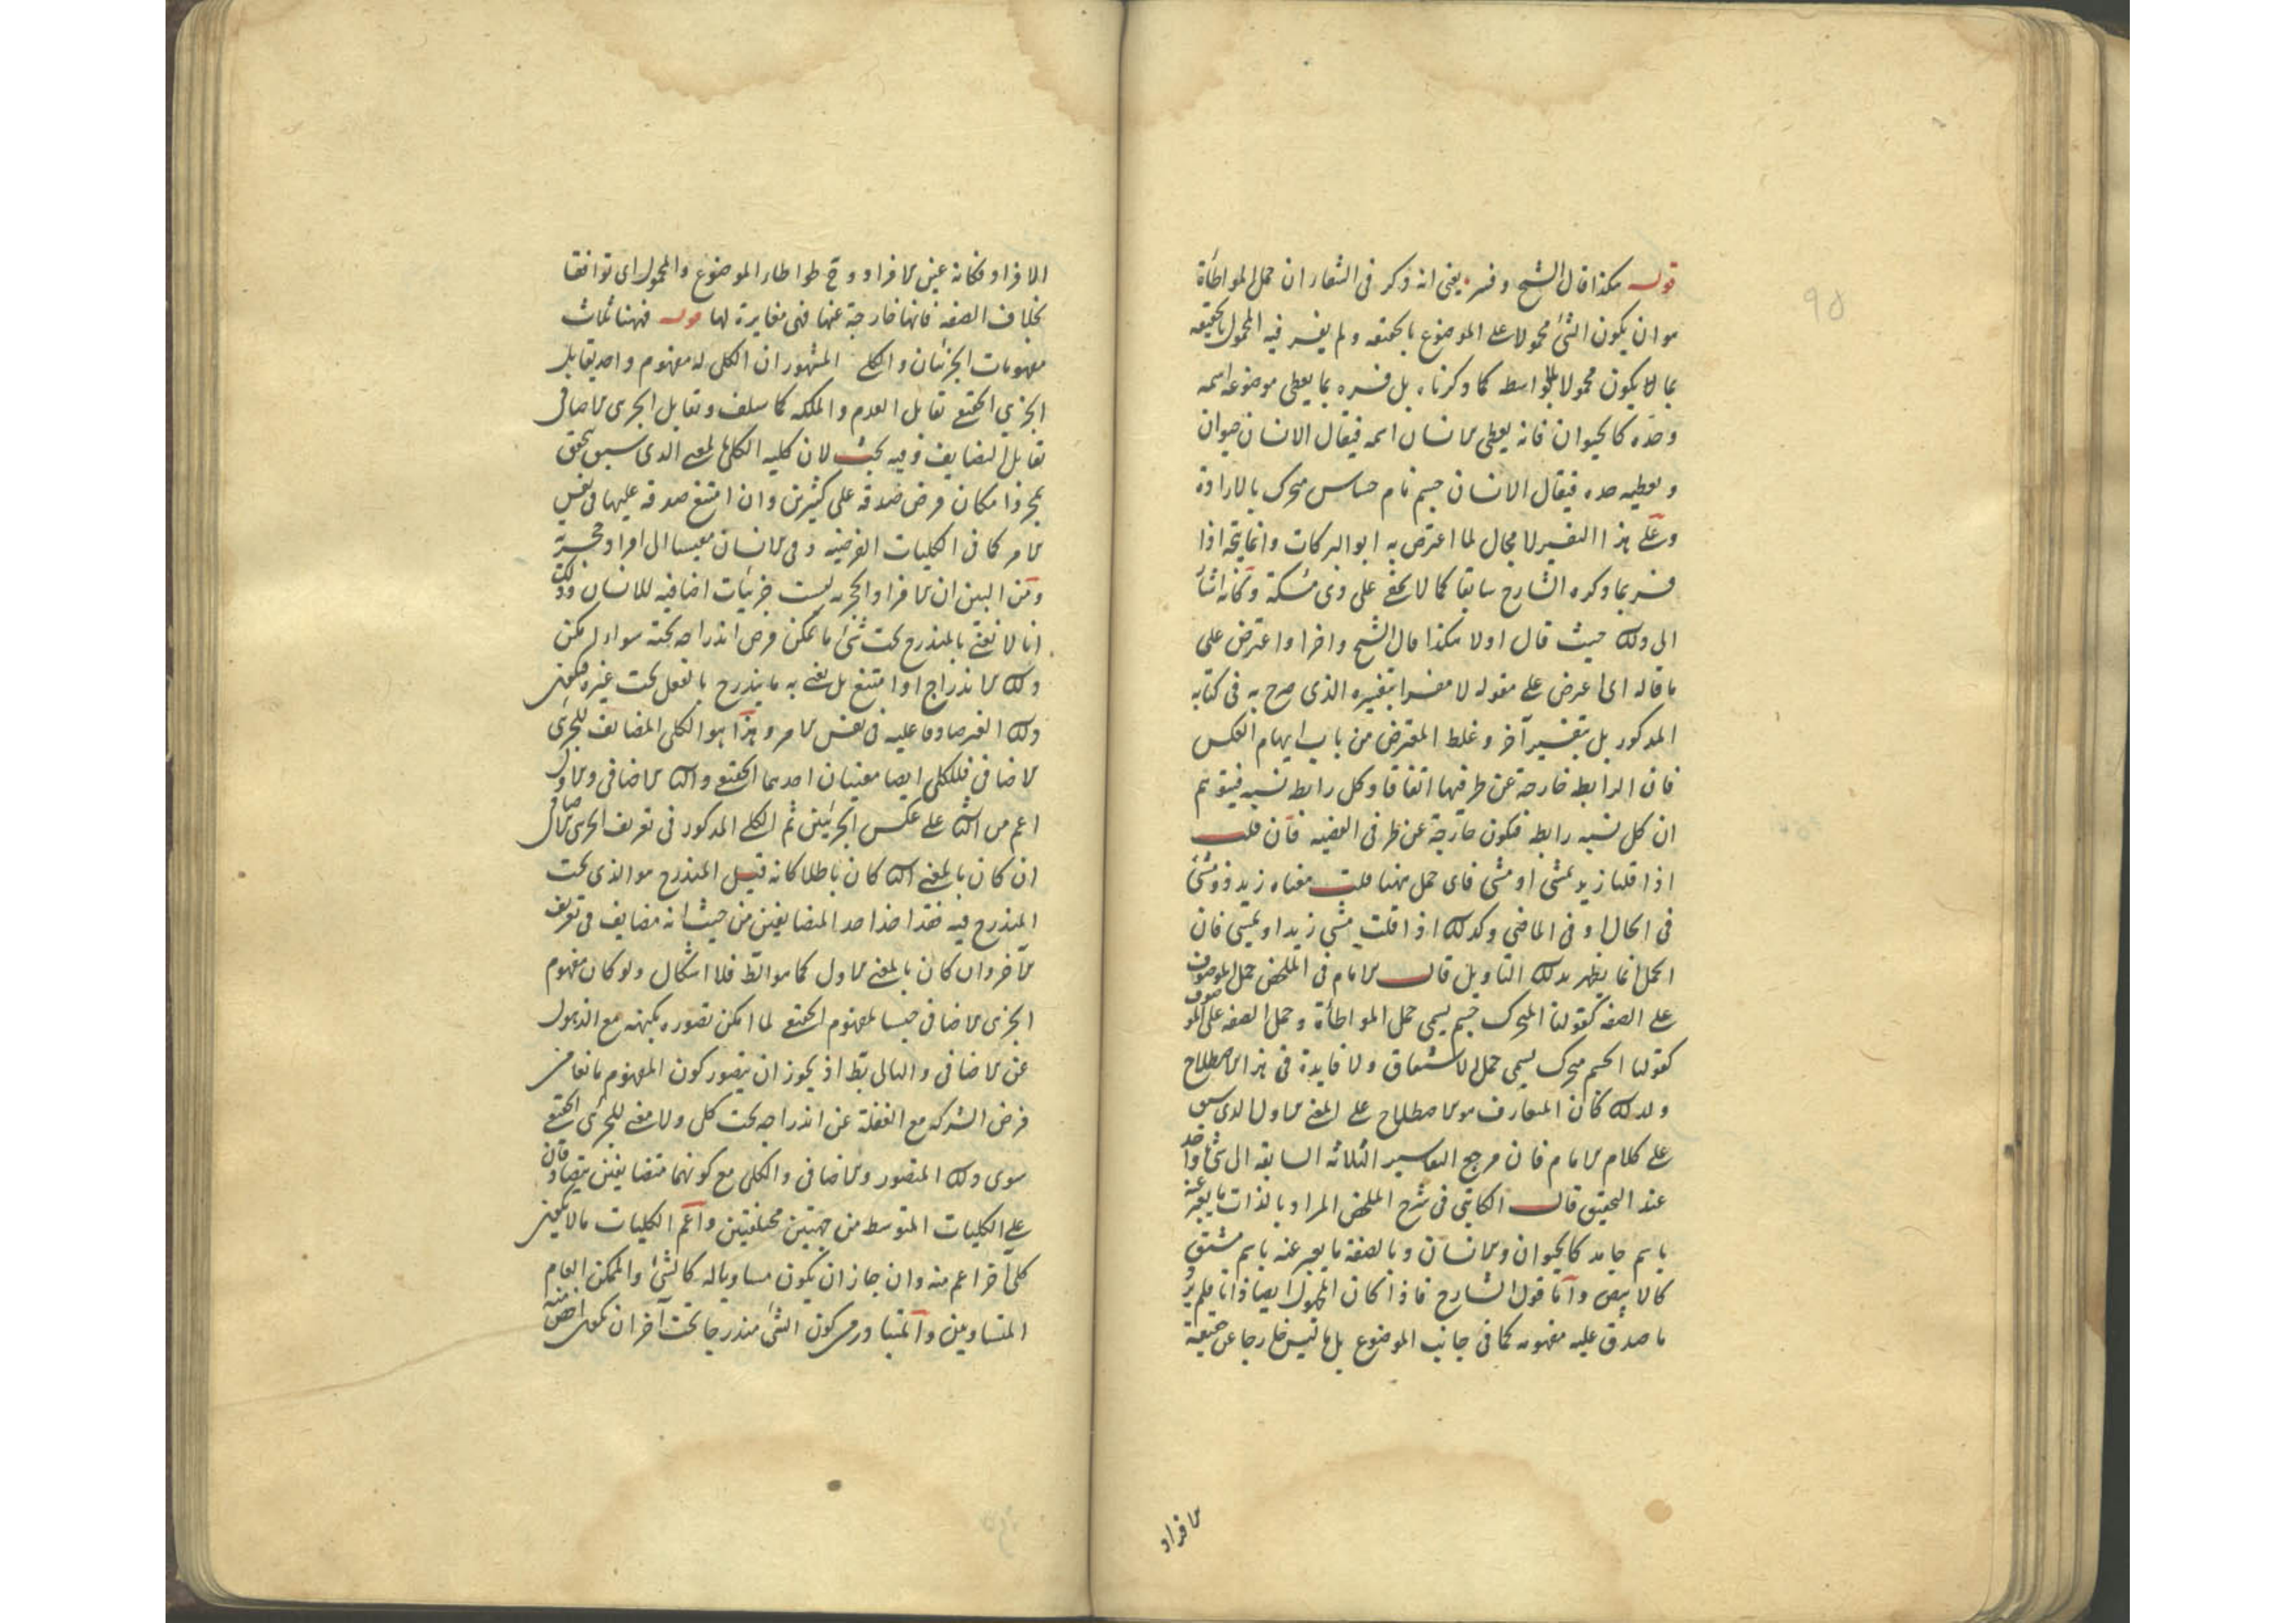 95
قوله هكذا قال الشيخ وفسره يعنى انه ذكر فى الشفاء ان حمل المواطأة
هو ان يكون الشئ محمولا على الموضوع بالحقيقة ولم يفسر فيه المحمول بالحقيقة
بما لا يكون محمولا بالواسطة كما ذكرناه بل فسره بما يعطى موضوعه اسمه
وحده كالحيوان فانه يعطى الانسان اسمه فيقال الانسان حيوان
ويعطيه حده فيقال الانسان جسم نام حساس متحرك بالارادة
وعلى هذا التفسير لا مجال لما اعترض به ابو البركات وانما يتجه اذا
فسر بما ذكره الشارح سابقا كما لا يخفى على ذى مسكة وكانه اشار
الى ذلك حيث قال اولا هكذا قال الشيخ واخرا واعترض على
ما قاله اى اعترض على مقوله لا مفسرا بتفسيره الذى صرح به فى كتابه
المذكور بل بتفسير آخر وغلط المعترض من باب ايهام العكس
فان الرابطة خارجة عن طرفيها اتفاقا وكل رابطة نسبة فيتوهم
ان كل نسبة رابطة فيكون خارجة عن طرفى القضية فان قلت
اذا قلنا زيد يمشى او مشى فاى حمل ههنا قلت معناه زيد ذو مشى
فى الحال او فى الماضى وكذلك اذا قلت مشى زيد او يمشى فان
الحمل انما يظهر بذلك التاويل قال الامام فى الملخص حمل الموصوف
على الصفة كقولنا المتحرك جسم يسمى حمل المواطأة وحمل الصفة على الموصوف
كقولنا الجسم متحرك يسمى حمل الاشتقاق ولا فايدة فى هذا الاصطلاح
ولذلك كان المتعارف هو الاصطلاح على المعنى الاول الذى سبق
على كلام الامام فان مرجع التفاسير الثلاثة السابقة الى شئ واحد
عند التحقيق قال الكاتبى فى شرح الملخص المراد بالذات ما يعبر عنه
باسم جامد كالحيوان والانسان وبالصفة ما يعبر عنه باسم مشتق
كالابيض واما قول الشارح فاذا كان المحمول ايضا ذاتا فلم يرد
ما صدق عليه مفهومه كما فى جانب الموضوع بل ما ليس خارجا عن حقيقة
الافراد
الافراد فكانه عين الافراد وح طواطاء الموضوع والمحمول اى توافقا
بخلاف الصفة فانها خارجة عنها فهى مغايرة لها قوله فههنا ثلث
مفهومات الجزئيان والكلى المشهور ان الكلى له مفهوم واحد يقابل
الجزئى الحقيقى تقابل العدم والملكة كما سلف وتقابل الجزئى الاضافى
تقابل التضايف وفيه بحث لان كلية الكلى بالمعنى الذى سبق تحقق
بمجرد امكان فرض صدقه على كثيرين وان امتنع صدقه عليها فى نفس
الامر كما فى الكليات الفرضية وفى الانسان مقيسا الى افراد حجرية
ومن البين ان الافراد الحجرية ليست جزئيات اضافية للانسان وذلك
انا لا نعنى بالمندرج تحت شئ ما يمكن فرض اندراجه تحته سواء امكن
ذلك الاندراج او امتنع بل نعنى به ما يندرج بالفعل تحت غيره فيكون
ذلك الغير صادقا عليه فى نفس الامر وهذا هو الكلى المضايف للجزئى
الاضافى فللكلى ايضا معنيان احدهما الحقيقى والثانى الاضافى والاول
اعم من الثانى على عكس الجزئيين ثم الكلى المذكور فى تعريف الجزئى الاضافى
ان كان بالمعنى الثانى كان باطلا كانه قيل المندرج هو الذى تحت
المندرج فيه فقد اخذ احد المتضايفين من حيث انه مضايف فى تعريف
الآخر وان كان بالمعنى الاول كما هو الظ فلا اشكال ولو كان مفهوم
الجزئى الاضافى جنسا لمفهوم الحقيقى لما امكن تصوره بكنهه مع الذهول
عن الاضافى والتالى بط اذ يجوز ان يتصور كون المفهوم مانعا من
فرض الشركة مع الغفلة عن اندراجه تحت كلى ولا معنى للجزئى الحقيقى
سوى ذلك المتصور والاضافى والكلى مع كونهما متضايفين يتصادقان
على الكليات المتوسطة من جهتين مختلفتين واعم الكليات ما لا يكون
كلى آخر اعم منه وان جاز ان يكون مساويا له كالشئ والممكن العام
المتساويين والمتبادر من كون الشئ مندرجا تحت آخر ان يكون اخص منه